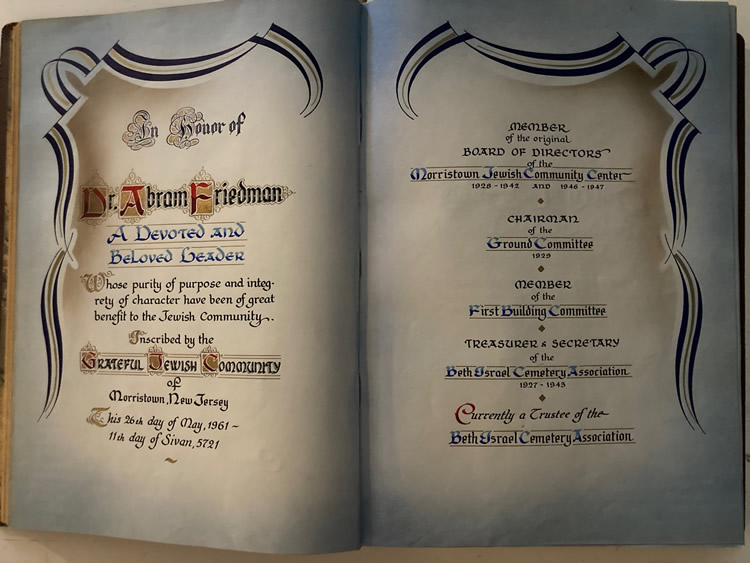 In Honor of
Dr. Abram Friedman
A Devoted and
Beloved Leader
Whose purity of purpose and integ-
rety of character have been of great
benefit to the Jewish Community.
Inscribed by the
Grateful Jewish Community
of
Morristown, New Jersey
This 26th day of May, 1961 ~
11th day of Sivan, 5721
~
MEMBER
of the original
BOARD OF DIRECTORS
of the
Morristown Jewish Community Center
1928 - 1942 AND 1946 - 1947
CHAIRMAN
of the
Ground Committee
1929
MEMBER
of the
First Building Committee
TREASURER & SECRETARY
of the
Beth Israel Cemetery Association
1927 - 1943
Currently a Trustee of the
Beth Israel Cemetery Association